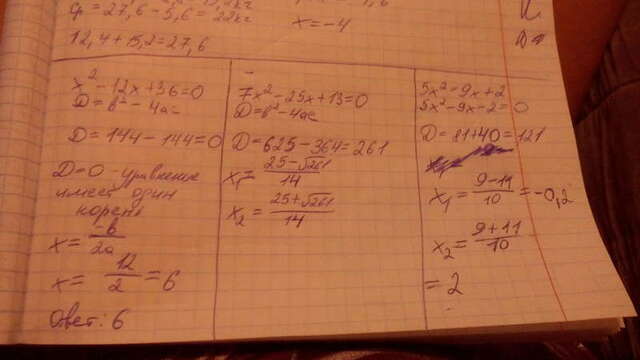 ср = 27,6 - 5,6 = 22кг
12,4 + 15,2 = 27,6
x = -4
x² - 12x + 36 = 0
D = b² - 4ac
D = 144 - 144 = 0
D = 0 - уравнение
имеет один
корень
x = -b/2a
x = 12/2 = 6
Ответ: 6
7x² - 25x + 13 = 0
D = b² - 4ac
D = 625 - 364 = 261
x₁ = 25 - √261/14
x₂ = 25 + √261/14
5x² = 9x + 2
5x² - 9x - 2 = 0
D = 81 + 40 = 121
x₁ = 9 - 11/10 = -0,2
x₂ = 9 + 11/10
= 2